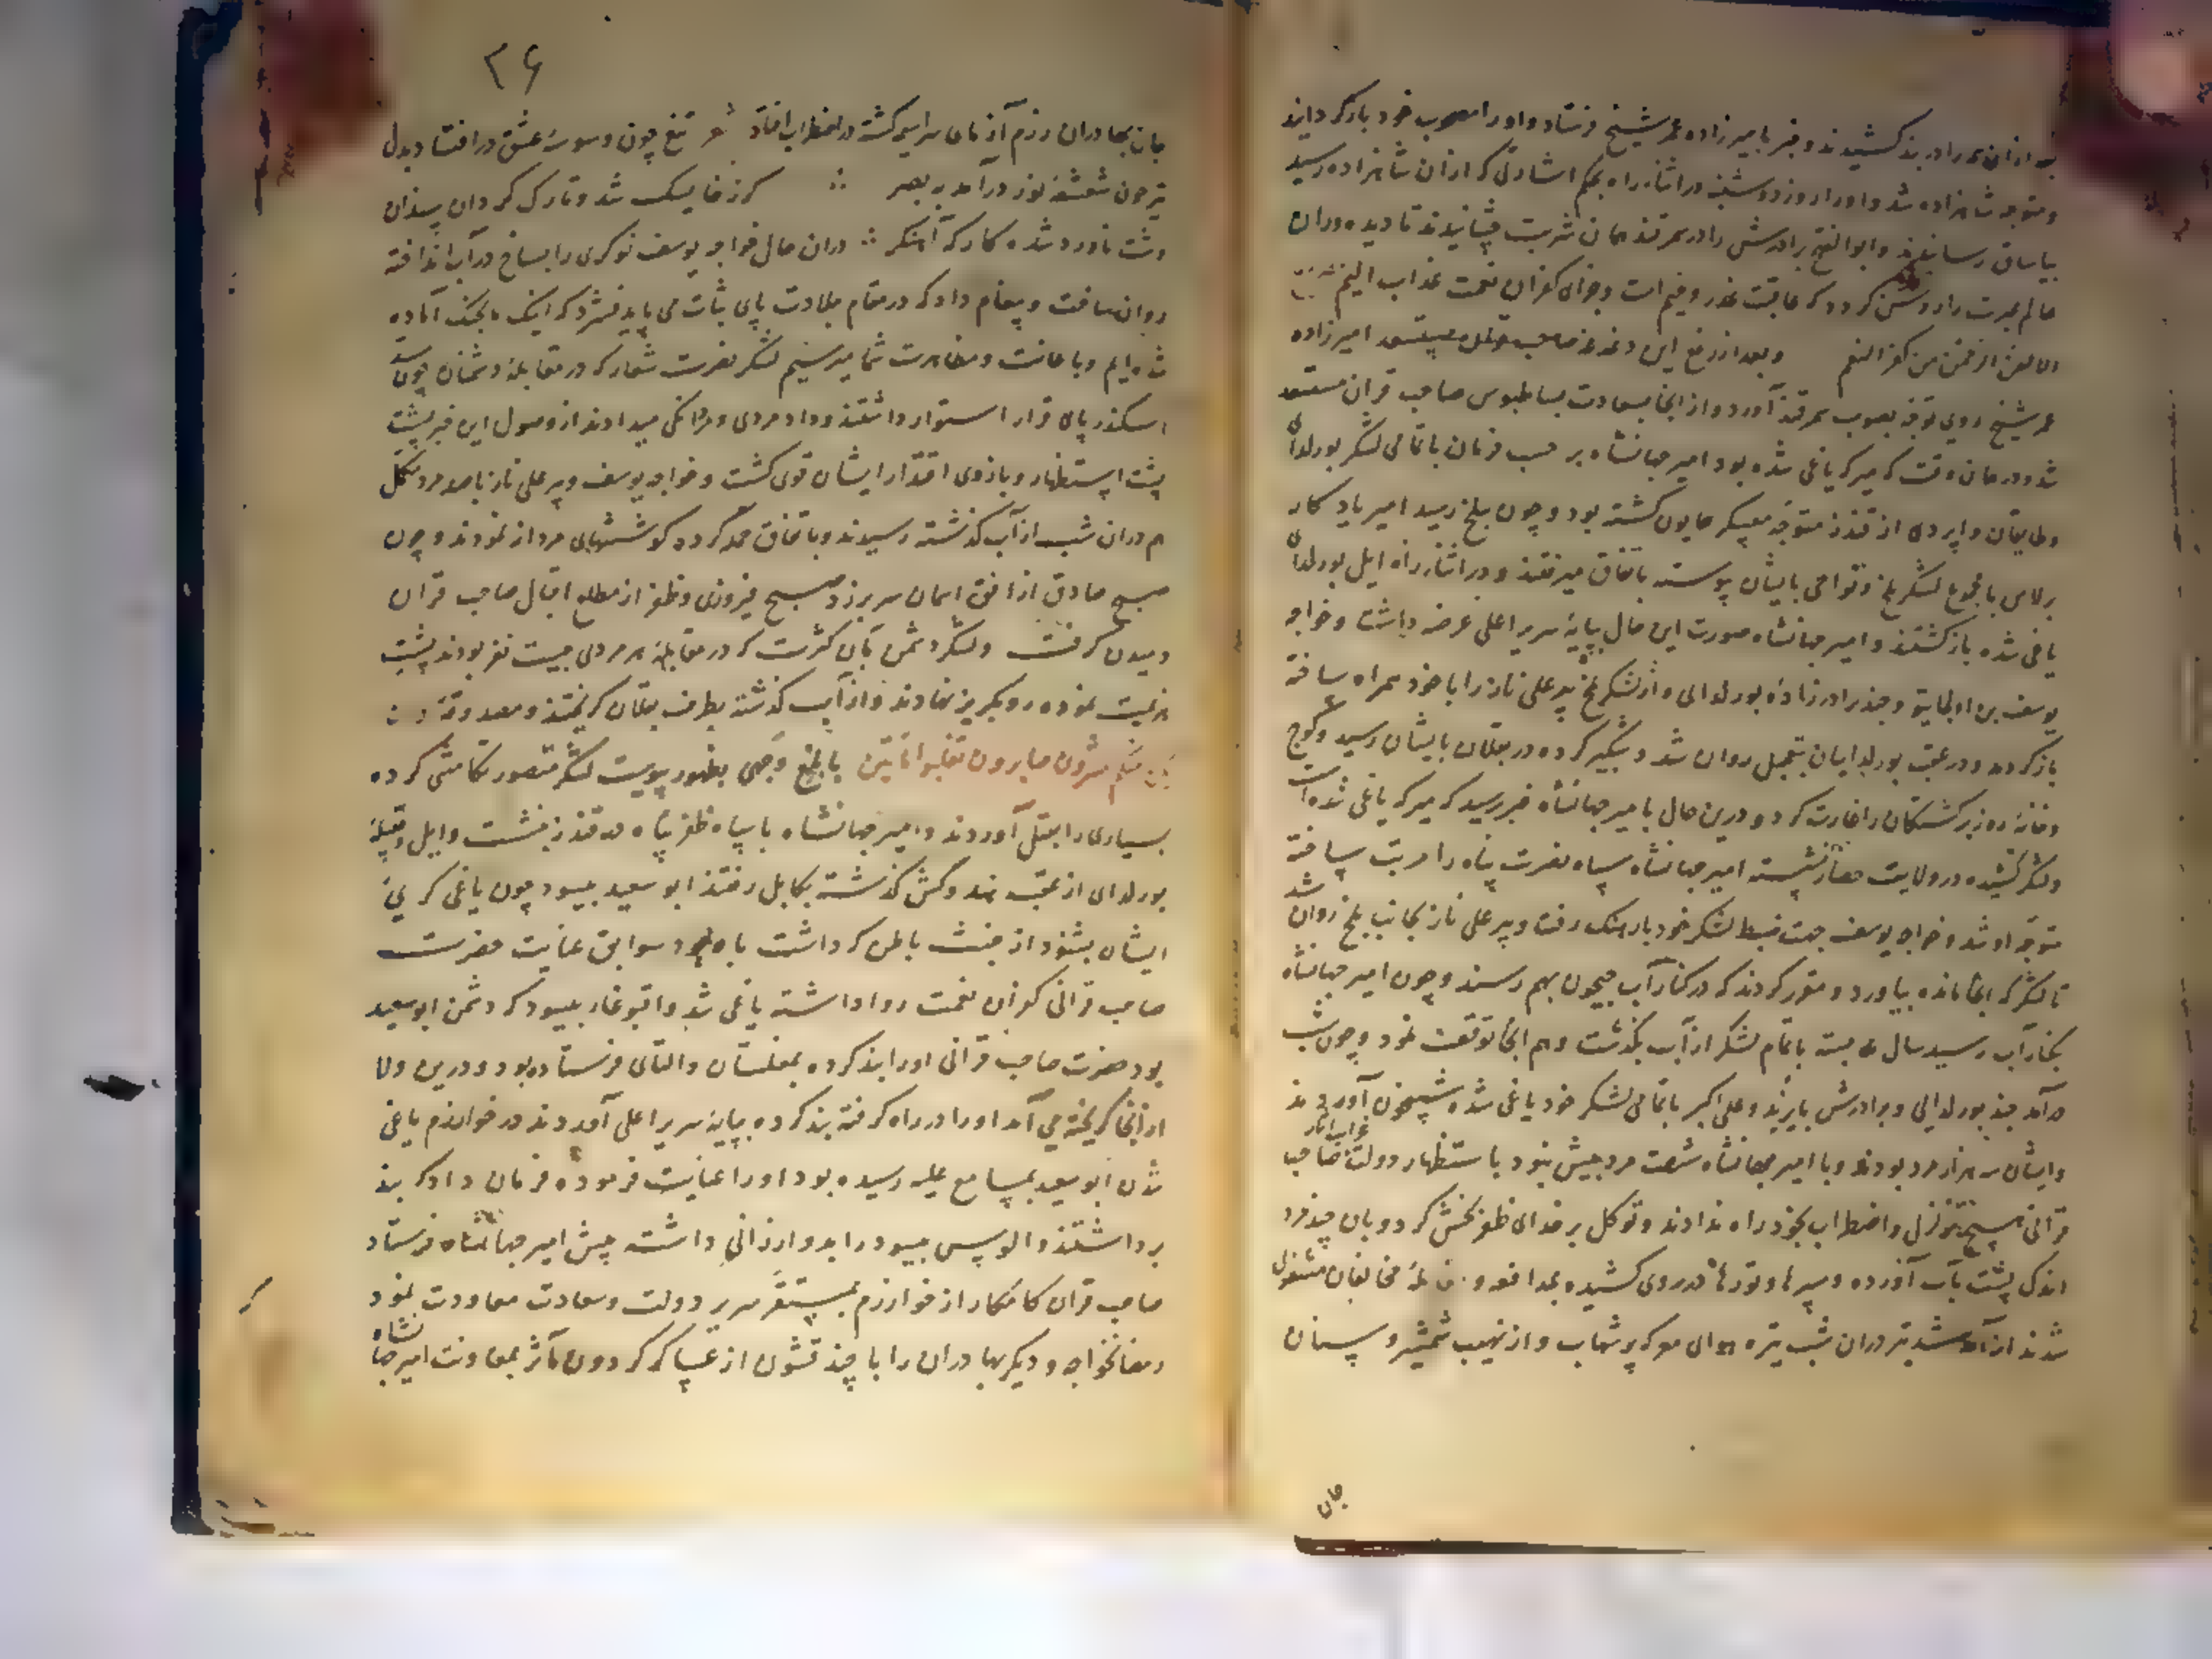 بعد ازان در بند کشیدند و خبر بامیرزاده عمر شیخ فرستاد و او را مصحوب خود بازگردانید
و متوجه شاهزاده شد و او را روز دوشنبه در اثناء راه بحکم اشارتی که ازان شاهزاده رسید
بیاساق رسانیدند و ابوالفتح برادرش را در سمرقند همان شربت چشانیدند تا دیده وران
عالم عبرت را روشن کردد که عاقبت غدر وخیم است و جزای کفران نعمت عذاب الیم
الا لعن الرحمن من کفر النعم و بعد از رفع این دغدغه امیرزاده
عمر شیخ روی توجه بصوب سمرقند آورد و از انجا بسعادت بساطبوس صاحب قران مستسعد
شد و در همان وقت که میرکه یاغی شده بود امیر جهانشاه بر حسب فرمان با تمامی لشکر بورلدای
و اپردی از قندز متوجه معسکر همایون کشته بود و چون ببلخ رسید امیر یادکار
برلاس با مجموع لشکر بلخ و نواحی بایشان پیوسته باتفاق میرفتند و در اثناء راه ایل بورلدای
یاغی شده بازکشتند و امیر جهانشاه صورت این حال بپایهٔ سریر اعلی عرضه داشت و خواجه
یوسف بن اولجایتو و چند برادرزادهٔ بورلدای و از لشکر بلخ پیر علی تاز را با خود همراه ساخته
بازکردید و در عقب بورلدایان بتعجیل روان شد و شبگیر کرده در بقلان بایشان رسید و کوچ
و خانهٔ روز برکشتکان را غارت کرد و درین حال بامیر جهانشاه خبر رسید که میرکه یاغی شده است
و لشکر کشیده در ولایت نشسته امیر جهانشاه سپاه نصرت پناه را مرتب ساخته
متوجه او شد و خواجه یوسف جهت ضبط لشکر خود بارهنک رفت و پیر علی تاز بجانب بلخ روان شد
تا لشکر که انجا مانده بیاورد و مقرر کردند که در کنار آب جیحون بهم رسند و چون امیر جهانشاه
بکنار آب رسید سال بسته با تمام لشکر از آب بگذشت و هم انجا توقف نمود و چون شب
درآمد جنید بورلدایی و برادرش بایزید و علی اکبر با تمامی لشکر خود یاغی شده شبیخون آوردند
و ایشان سه هزار مرد بودند و با امیر جهانشاه شصت مرد بیش نبود باستظهار دولت صاحب
قرانی هیچ تزلزل و اضطراب بخود راه ندادند و توکل بر خدای ظفر بخش کرد و بان چند مرد
اندک پشت بآب آورده و سپرها و تورها در روی کشیده بمدافعه و مقابلهٔ مخالفان مشغول
شدند از آمد شد تیر دران شب تیره هوای معرکه پر شهاب و از نهیب شمشیر و سنان
جان
۴۶
جان بهادران رزم آزمای سراسیمه کشته در اضطراب افتاد شعر تیغ چون وسوسهٔ عشق در افتاد بدل
تیر چون شعشعهٔ نور درآمد به بصر کرز خایسک شد و تارک کردان سندان
دشت ناورد شده کارکه آهنکر دران حال خواجه یوسف نوکری را بساخ در آب انداخته
روان ساخت و پیغام داد که در مقام جلادت پای ثبات می باید فشرد که اینک ما بجنک آماده
شده ایم و باعانت و مظاهرت شما میرسیم لشکر نصرت شعار که در مقابلهٔ دشمنان چون سد
اسکندر پای قرار استوار داشتند و داد مردی و مردانکی میدادند از وصول این خبر پشت
استظهار و بازوی اقتدار ایشان قوی کشت و خواجه یوسف و پیر علی تاز با صد مرد مکمل
هم دران شب از آب کذشته رسیدند و باتفاق حمله کرده کوششهای مردانه نمودند و چون
صبح صادق از افق آسمان سر برزد صبح فیروزی و ظفر از مطلع اقبال صاحب قران
دمیدن کرفت و لشکر دشمن بآن کثرت که در مقابلهٔ هر مردی بیست نفر بودند پشت
هزیمت نموده رو بگریز نهادند و از آب کذشته بطرف بقلان کریختند و مصدوقهٔ
ان یکن منکم عشرون صابرون یغلبوا مائتین بابلغ وجهی بظهور پیوست لشکر منصور تکامشی کرده
بسیاری را بقتل آوردند و امیر جهانشاه با سپاه ظفر پناه در قندز بنشست و ایل و قبیلهٔ
بورلدای از عقب هندوکش کذشته بکابل رفتند ابو سعید بیسود چون یاغی کری
ایشان بشنود از خبث باطن که داشت با وجود سوابق عنایت حضرت
صاحب قرانی کفران نعمت روا داشته یاغی شد و اقبوغاء بیسود که دشمن ابوسعید
بود حضرت صاحب قرانی او را بند کرده بمغلستان و التای فرستاده بود و درین ولا
از انجا کریخته می آمد او را در راه کرفته بند کرده بپایهٔ سریر اعلی آوردند در خوارزم یاغی
شدن ابوسعید بمسامع علیه رسیده بود او را عنایت فرموده فرمان داد که بند
برداشتند و الوس بیسود را بدو ارزانی داشته پیش امیر جهانشاه فرستاد
صاحب قران کامکار از خوارزم بمستقر سریر دولت و سعادت معاودت نمود
رمضانخواجه و دیکر بهادران را با چند قشون از عساکر کردون مآثر بمعاونت امیر جهانشاه